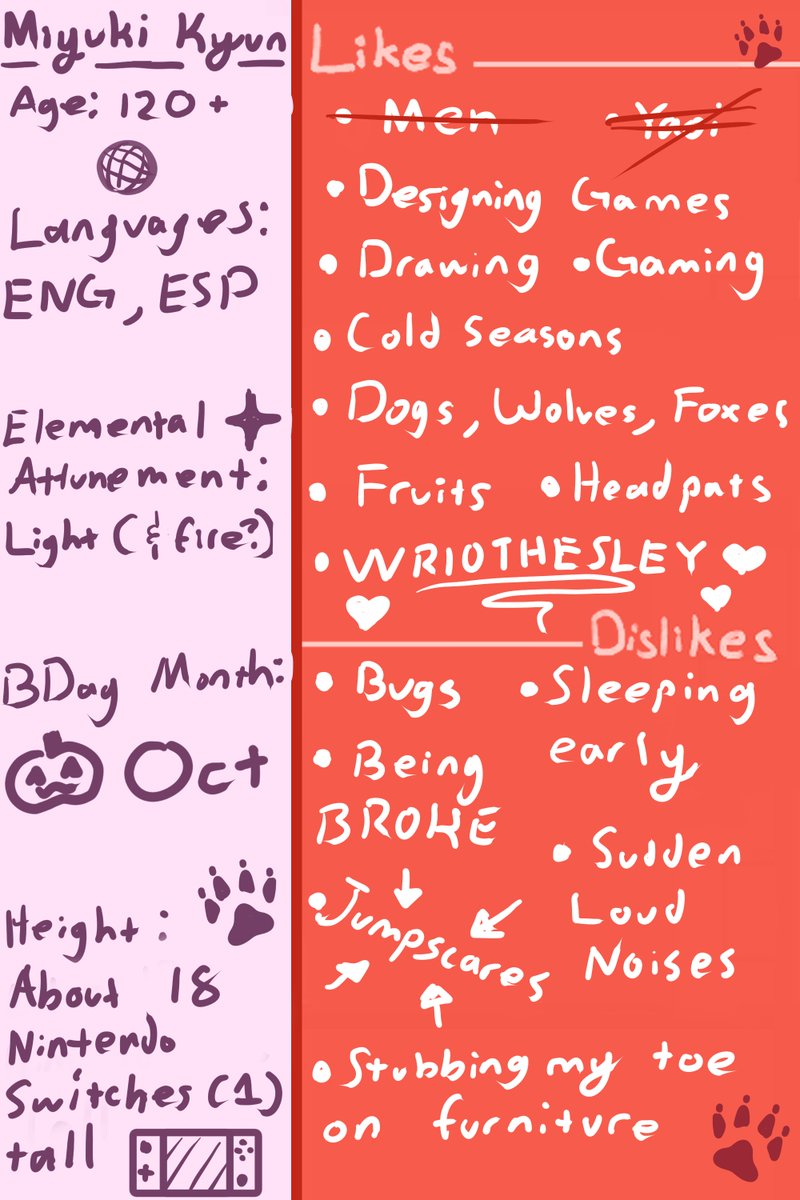 Miyuki Kyun
Age: 120+
Languages:
ENG, ESP
Elemental
Attunement:
Light (& fire?)
BDay Month:
Oct
Height:
About 18
Nintendo
Switches (1)
tall
Likes
• Men • Yaoi
• Designing Games
• Drawing • Gaming
• Cold Seasons
• Dogs, Wolves, Foxes
• Fruits • Headpats
• WRIOTHESLEY
Dislikes
• Bugs
• Sleeping
early
• Being
BROKE
• Sudden
Loud
Noises
• Jumpscares
• Stubbing my toe
on furniture